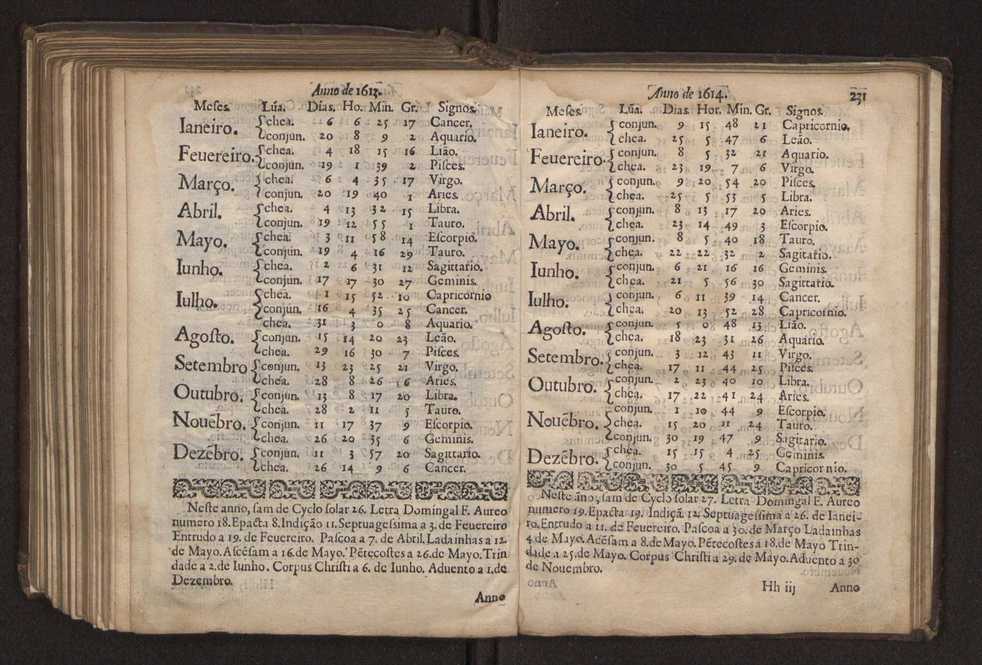 Anno de 1613.
Meses. Lũa. Dias. Ho. Min. Gr. Signos.
Ianeiro. chea. 6 6 25 17 Cancer.
conjun. 20 8 9 2 Aquario.
Feuereiro. chea. 4 18 15 16 Lião.
conjun. 19 1 39 2 Pisces.
Março. chea. 6 4 35 17 Virgo.
conjun. 20 19 40 1 Aries.
Abril. chea. 4 13 32 15 Libra.
conjun. 19 12 55 1 Tauro.
Mayo. chea. 3 11 58 14 Escorpio.
conjun. 19 4 16 29 Tauro.
Iunho. chea. 2 6 31 12 Sagittario.
conjun. 17 17 30 27 Geminis.
Iulho. chea. 1 15 52 10 Capricornio
conjun. 16 4 35 25 Cancer.
chea. 31 3 0 8 Aquario.
Agosto. conjun. 15 14 20 23 Leão.
chea. 29 16 30 7 Pisces.
Setembro conjun. 13 23 25 21 Virgo.
chea. 28 8 26 16 Aries.
Outubro. conjun. 13 8 17 20 Libra.
chea. 28 2 11 5 Tauro.
Nouẽbro. conjun. 11 17 37 9 Escorpio.
chea. 26 20 35 6 Geminis.
Dezẽbro. conjun. 11 3 57 20 Sagittario.
chea. 26 14 9 6 Cancer.
Neste anno, sam de Cyclo solar 26. Letra Domingal F. Aureo
numero 18. Epacta 8. Indição 11. Septuagessima a 3. de Feuereiro
Entrudo a 19. de Feuereiro. Pascoa a 7. de Abril. Ladainhas a 12.
de Mayo. Ascẽsam a 16. de Mayo. Pẽtecostes a 26. de Mayo. Trin
dade a 2. de Iunho. Corpus Christi a 6. de Iunho. Aduento a 1. de
Dezembro.
Anno
Anno de 1614.
231
Meses. Lũa. Dias. Hor. Min. Gr. Signos.
Ianeiro. conjun. 9 15 48 21 Capricornio.
chea. 25 5 47 6 Leão.
Feuereiro. conjun. 8 5 32 21 Aquario.
chea. 23 19 7 6 Virgo.
Março. conjun. 9 20 54 20 Pisces.
chea. 25 5 53 5 Libra.
Abril. conjun. 8 13 17 20 Aries.
chea. 23 14 49 3 Escorpio.
Mayo. conjun. 8 5 40 18 Tauro.
chea. 22 22 32 2 Sagitatio.
Iunho. conjun. 6 21 16 16 Geminis.
chea. 21 5 56 30 Sagittario.
Iulho. conjun. 6 11 39 14 Cancer.
chea. 20 13 52 28 Capricornio.
Agosto. conjun. 5 0 48 13 Lião.
chea. 18 23 31 26 Aquario.
Setembro. conjun. 3 12 43 11 Virgo.
chea. 17 11 44 25 Pisces.
Outubro. conjun. 2 23 40 10 Libra.
chea. 17 22 41 24 Aries.
Nouẽbro. conjun. 1 10 44 9 Escorpio.
chea. 15 20 11 24 Tauro.
conjun. 30 19 47 9 Sagitario.
Dezẽbro. chea. 15 15 4 25 Geminis.
conjun. 30 5 45 9 Capricornio.
Neste ãno, sam de Cyclo solar 27. Letra Domingal F. Aureo
numero 19. Epacta 19. Indiçã. 12. Septuagessima a 26. de Ianei-
ro. Entrudo a 11. de Feuereiro. Pascoa a 30. de Março Ladainhas
4 de Mayo. Acẽsam a 8. de Mayo. Pẽtecostes a 18. de Mayo Trin-
dade a 25. de Mayo. Corpus Christi a 29. de Mayo. Aduento a 30
de Nouembro.
Hh iij Anno